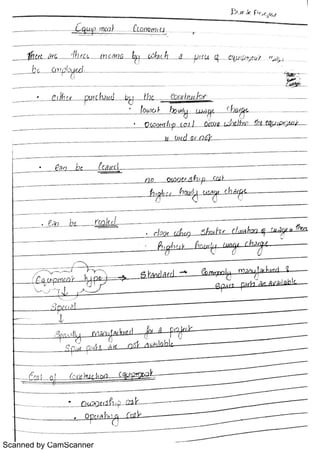 Equipment Economics
There are three means by which a piece of equipment may
be employed.
• either purchased by the contractor
• lowest hourly usage charge
• Ownership cost occur whether the equipment
is used or not
• can be leased
no ownership cost
higher hourly usage charge
• can be rented
• done when shorter duration of usage is there
• highest hourly usage charge
Equipment type → Standard → Commonly manufactured &
spare parts are available
Special
↓
Specially manufactured for a project
Spare parts are not available
Cost of Construction Equipment
• Ownership cost
• Operating cost
Scanned by CamScanner